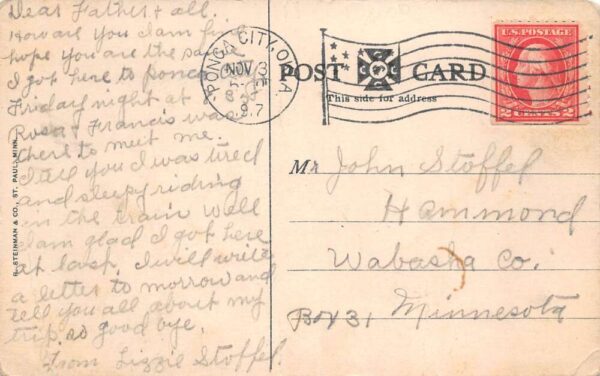 Dear Father & all.
How are you I am fine
hope you are the same
I got here to Ponca
Friday night at
Rosa & Francis was
there to meet me.
I tell you I was tired
and sleepy riding
in the train Well
I am glad I got here
at last. I will write
a letter to morrow and
tell you all about my
trip. so good bye.
From Lizzie Stoffel.
STEINMAN & CO., ST. PAUL, MINN.
PONCA CITY, OKLA.
NOV 3
POST CARD
This side for address
U.S. POSTAGE
2 CENTS 2
Mr John Stoffel
Hammond
Wabasha Co.
Box 31 Minnesota